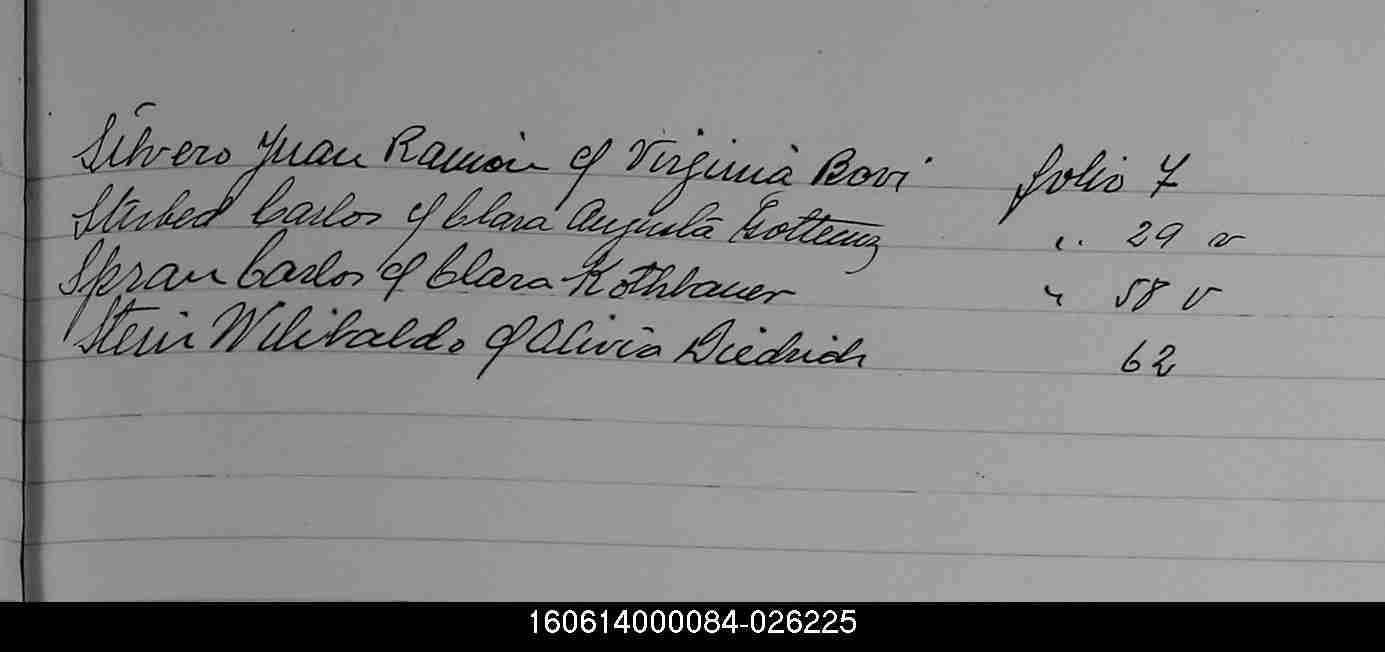 Silvero Juan Ramón cf Virginia Bovi folio 7
Carlos cf Clara Augusta " 29 v
Spran Carlos cf Clara Kothbauer " 58 v
Stein Wilibaldo cf Olivia Diedrich 62
160614000084-026225